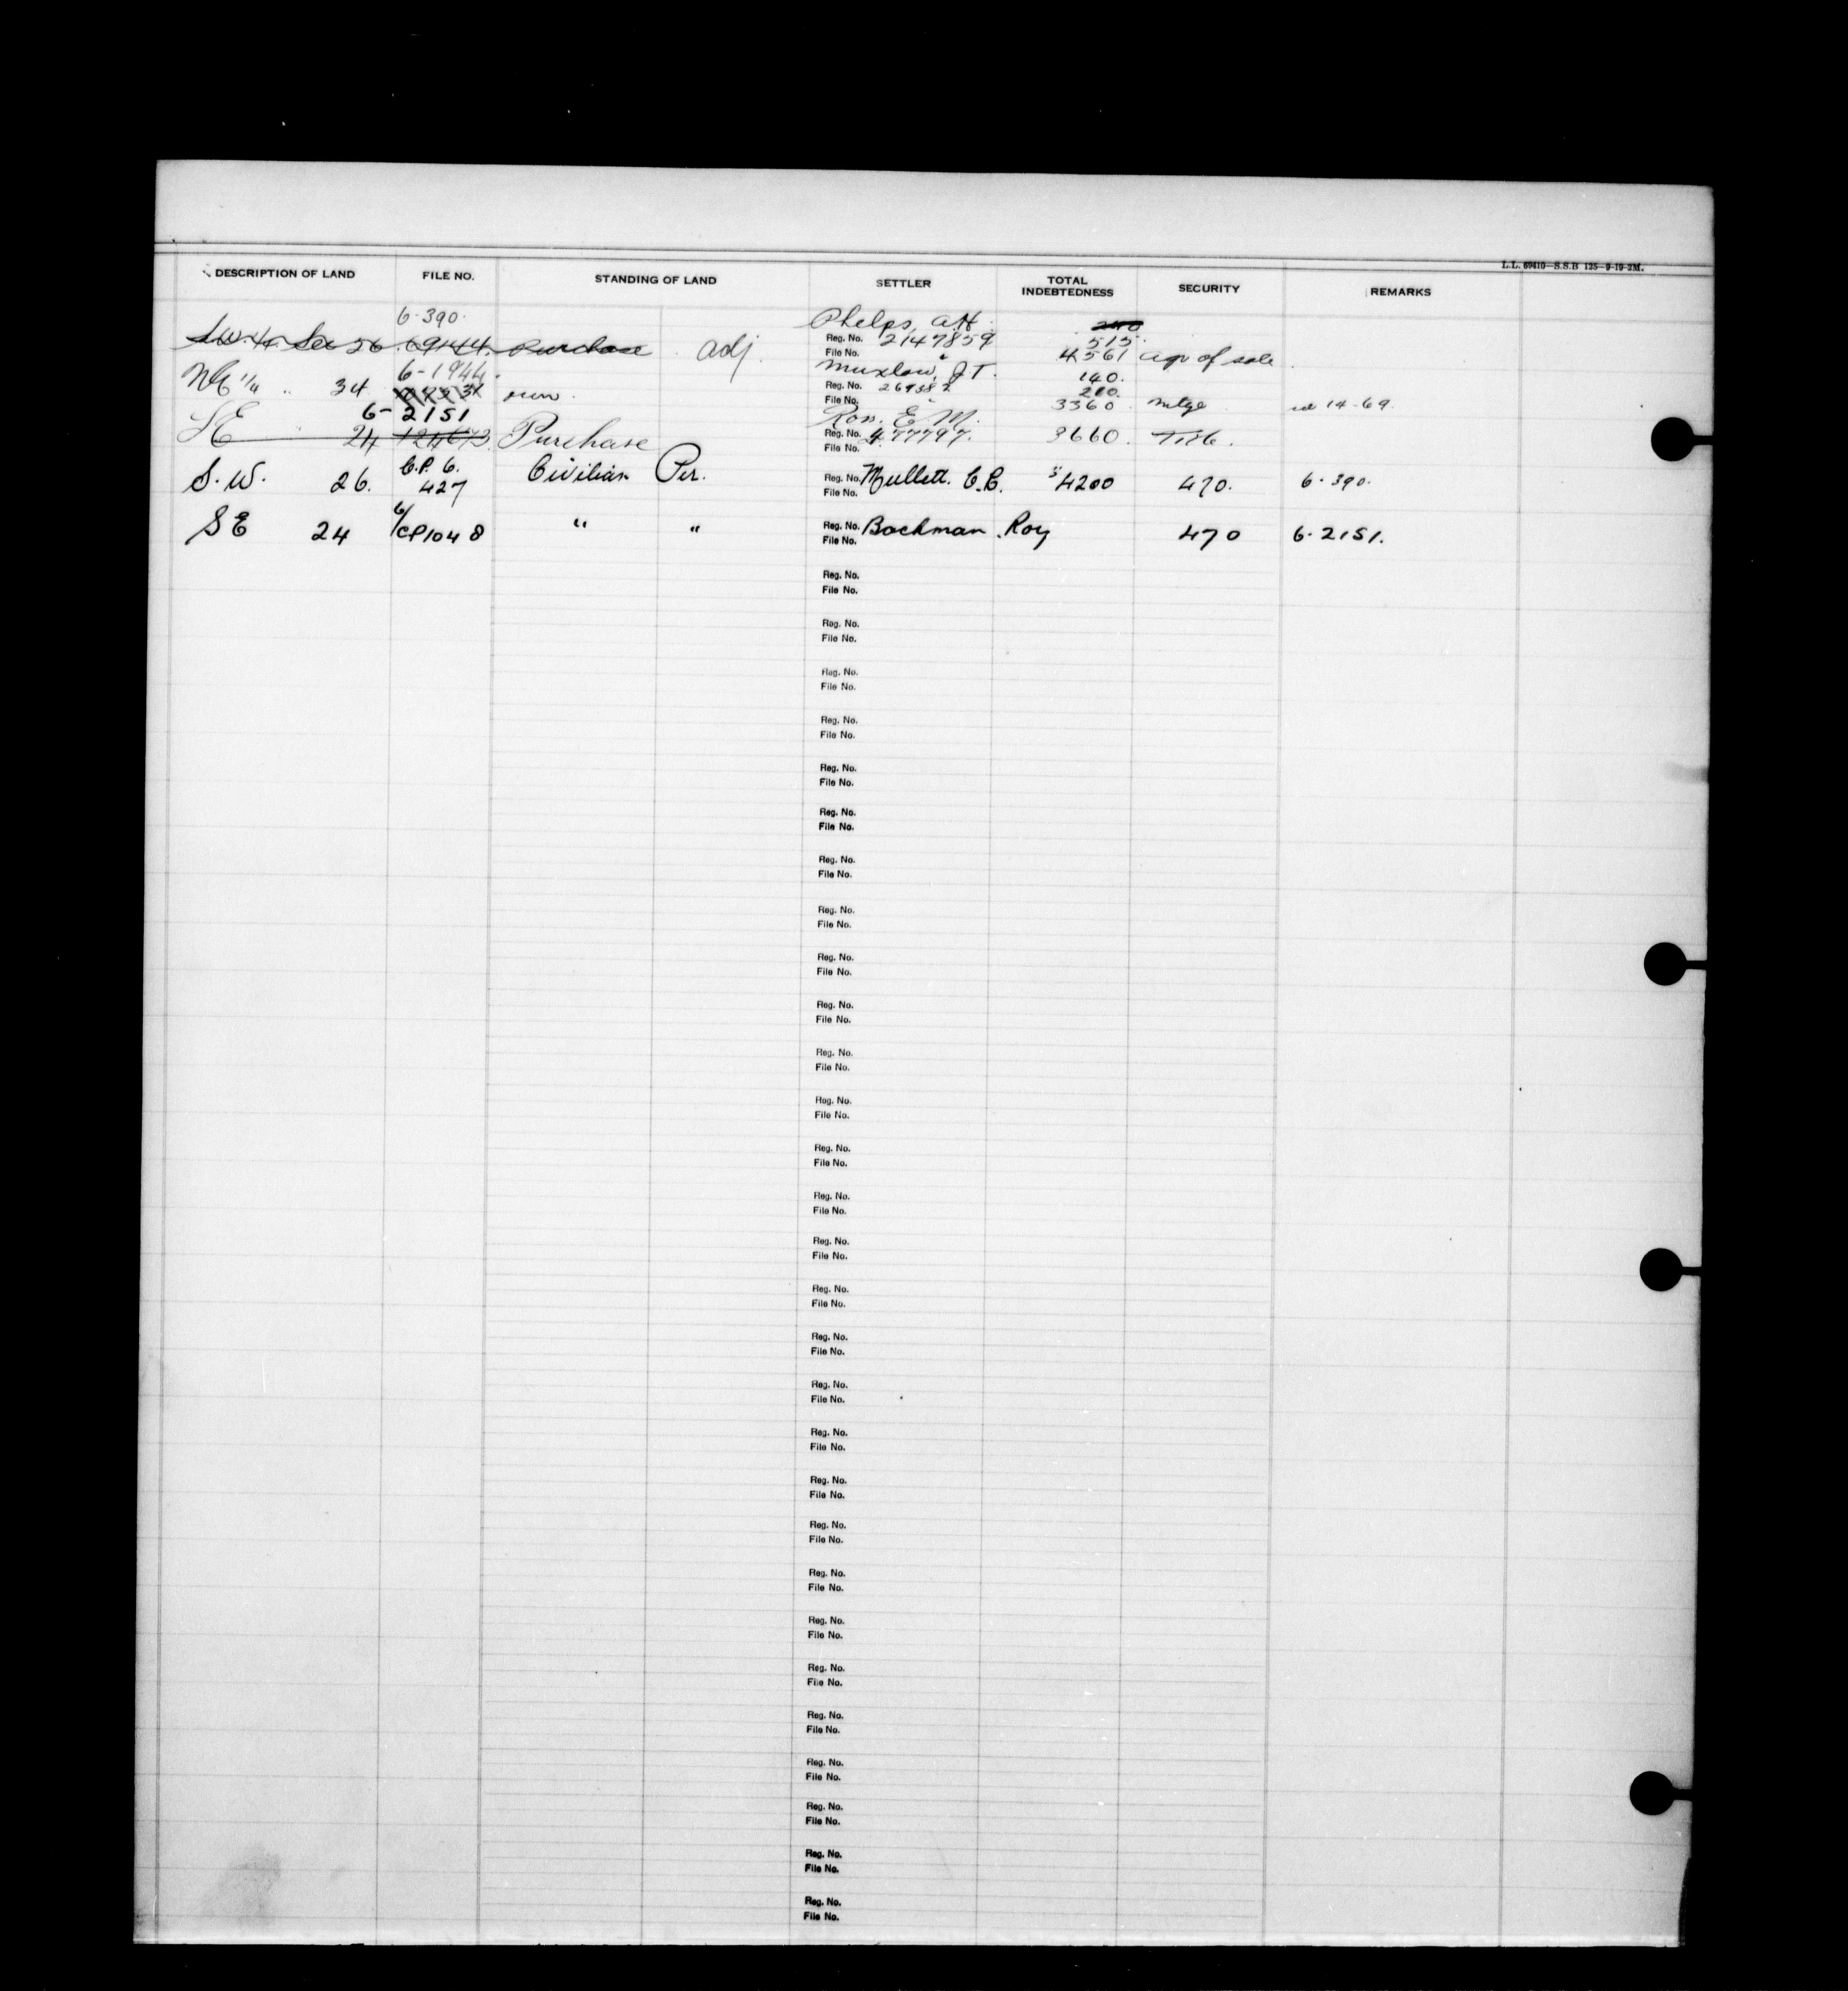 L.L. 69410—S.S.B 125—9-19-2M.
DESCRIPTION OF LAND FILE NO. STANDING OF LAND SETTLER TOTAL INDEBTEDNESS SECURITY REMARKS
6-390. Phelps, A.H. 240
S.W. 1/4 Sec 26 69144. Purchase adj. Reg. No. 2147859 515.
File No. 4561 agr of sale
6-1944. Muxlow, J.T. 140.
NE 1/4 " 34 own. Reg. No. 269382 210.
File No. 3360. mtge 14-69
6-2151 Ross. E. M.
SE " 24 124673 Purchase Reg. No. 477797. 3660. Title.
File No.
C.P. 6.
S.W. 26. 427 Civilian Pur. Reg. No. Mullett. C.C. $4200 470. 6-390.
File No.
6/
SE 24 CP1048 " " Reg. No. Bachman. Roy 470 6-2151.
File No.
Reg. No.
File No.
Reg. No.
File No.
Reg. No.
File No.
Reg. No.
File No.
Reg. No.
File No.
Reg. No.
File No.
Reg. No.
File No.
Reg. No.
File No.
Reg. No.
File No.
Reg. No.
File No.
Reg. No.
File No.
Reg. No.
File No.
Reg. No.
File No.
Reg. No.
File No.
Reg. No.
File No.
Reg. No.
File No.
Reg. No.
File No.
Reg. No.
File No.
Reg. No.
File No.
Reg. No.
File No.
Reg. No.
File No.
Reg. No.
File No.
Reg. No.
File No.
Reg. No.
File No.
Reg. No.
File No.
Reg. No.
File No.
Reg. No.
File No.
Reg. No.
File No.
Reg. No.
File No.